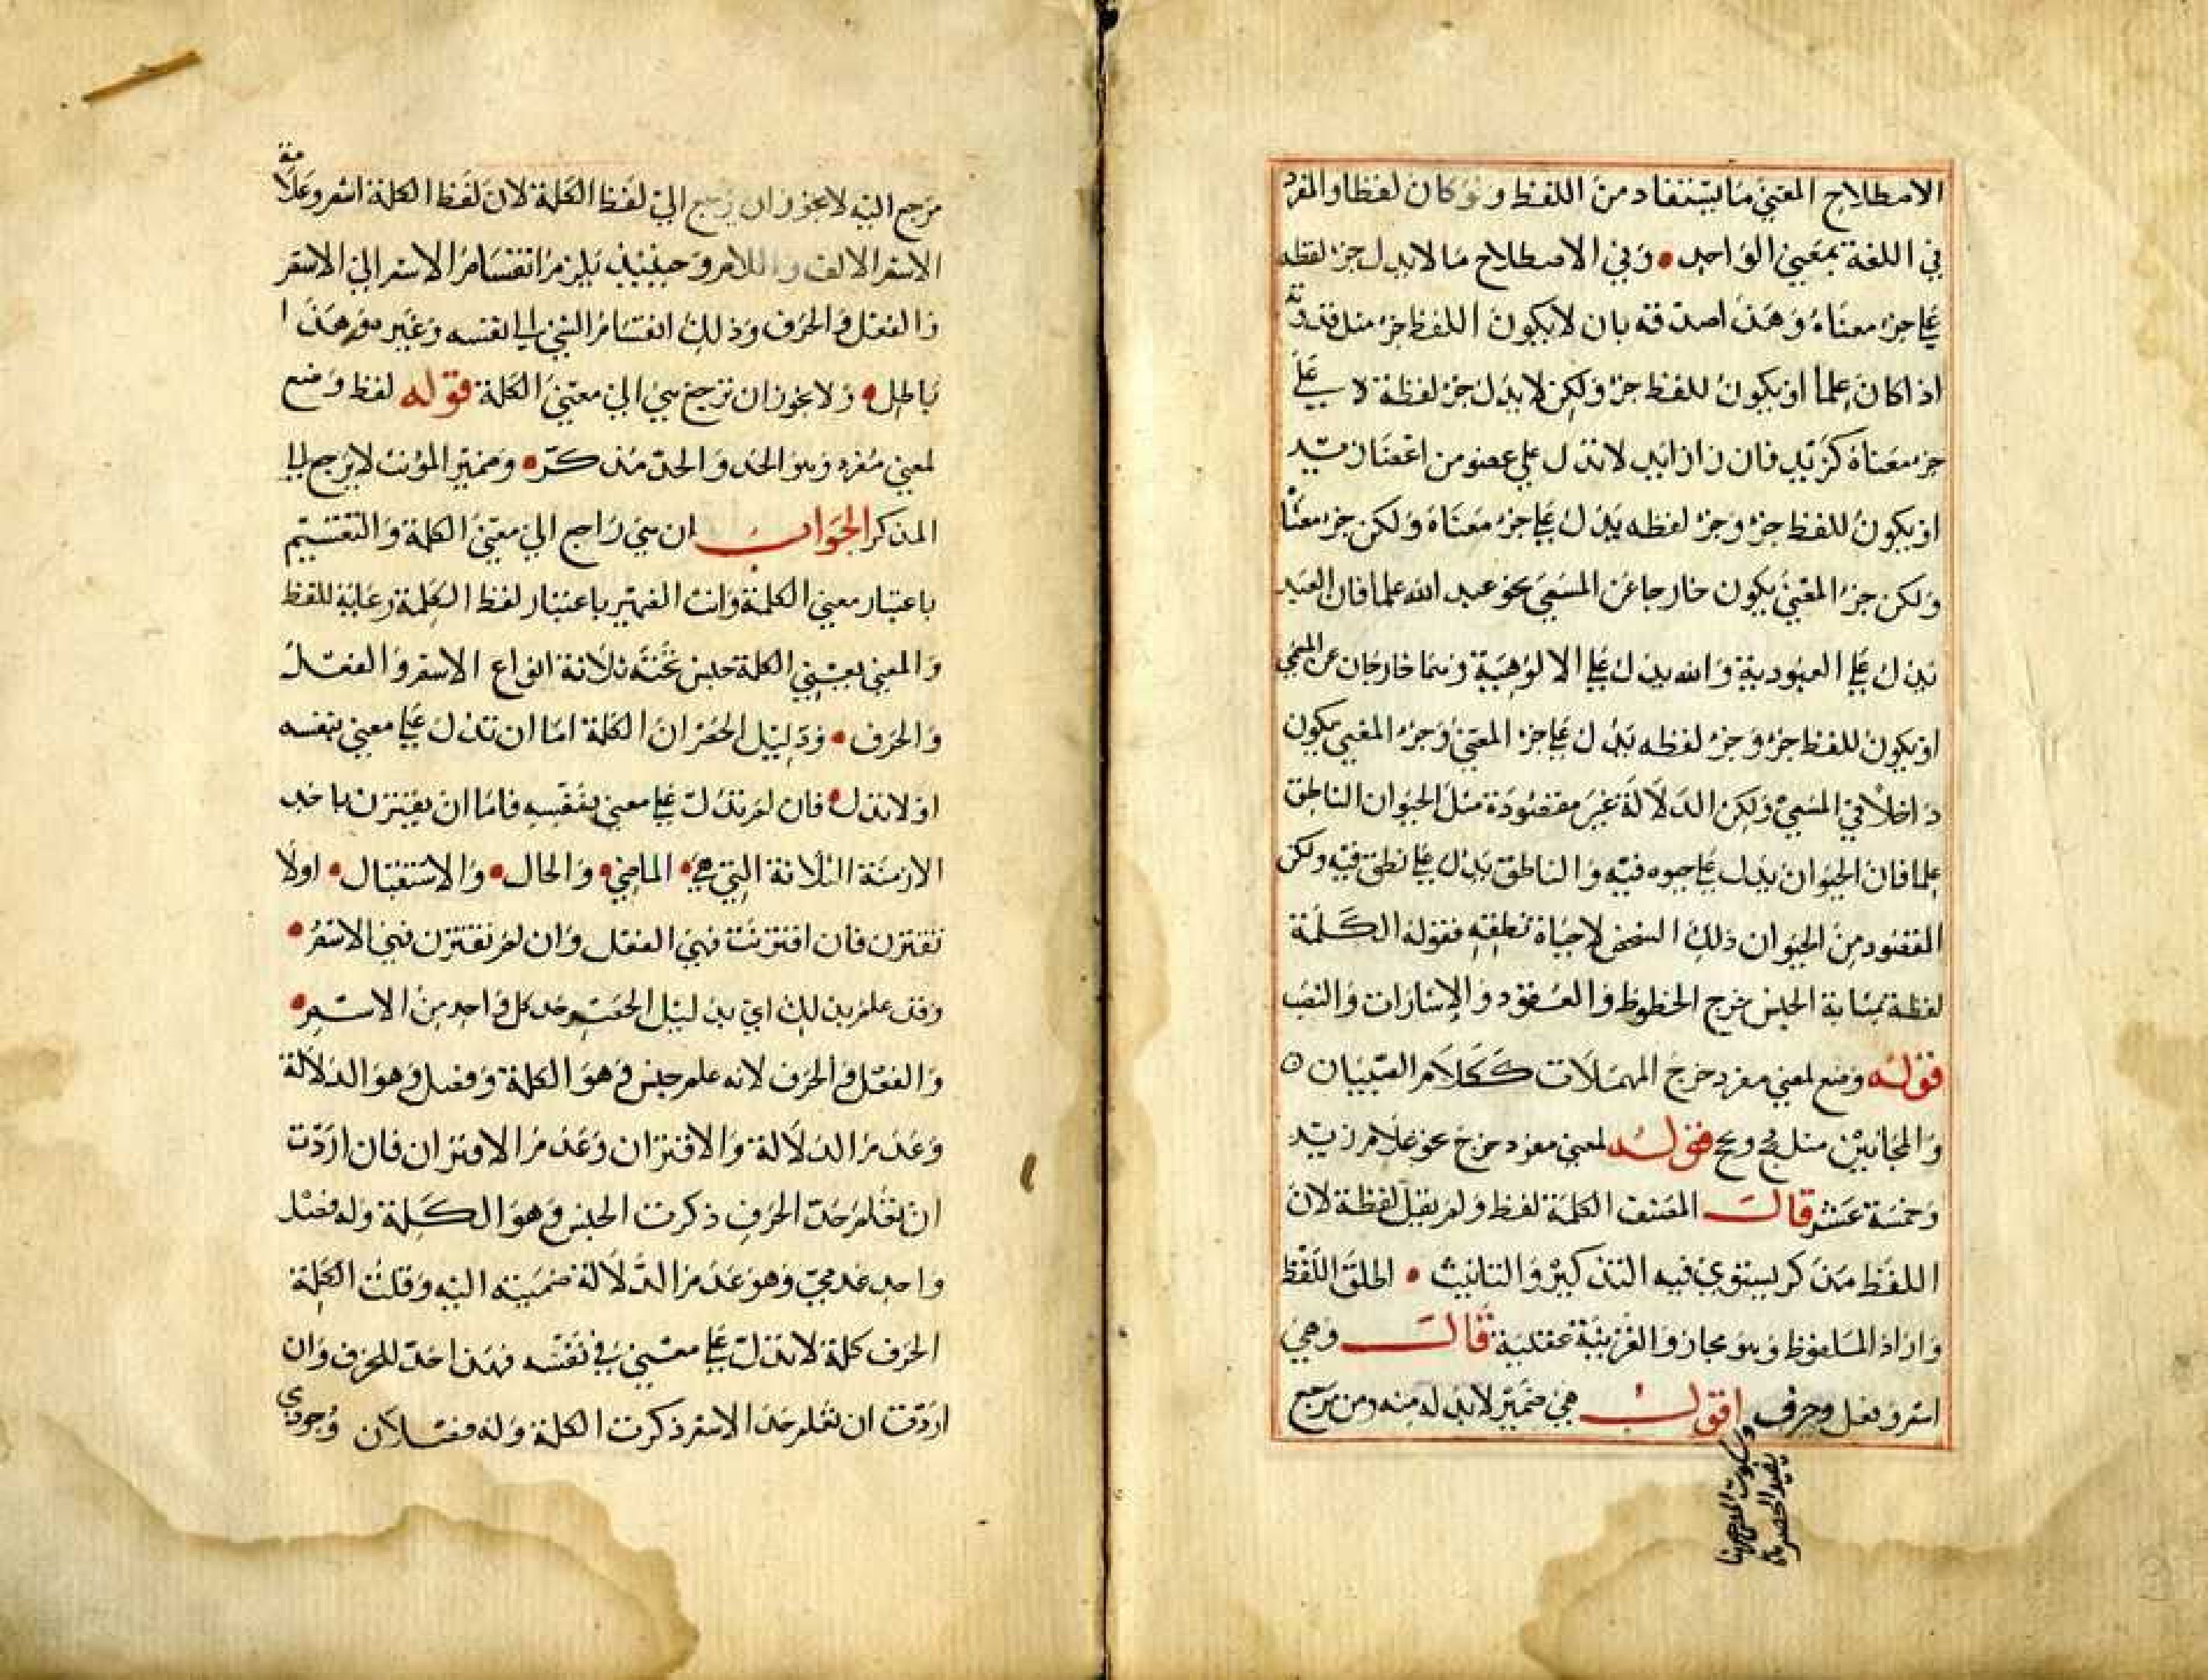 الاصطلاح المعني ما يستفاد من اللفظ ولو كان لفظا والمفرد
في اللغة بمعني الواحد • وفي الاصطلاح ما لا يدل جزء لفظه
علي جزء معناه وهذا صدقه بان لا يكون اللفظ جزء مثل ق
اذا كان علما او يكون للفظ جزء ولكن لا يدل جزء لفظة لا علي
جزء معناه كزيد فان زا زايد لا تدل علي عضو من اعضا زيد
او يكون للفظ جزء وجزء لفظه يدل علي جزء معناه ولكن جزء معنا
ولكن جزء المعني يكون خارجا عن المسمي نحو عبد الله علما فان العبد
يدل علي العبودية والله يدل علي الالوهية وهما خارجان عن المسمي
او يكون للفظ جزء وجزء لفظه يدل علي جزء المعني وجزء المعني يكون
داخلا في المسمي ولكن الدلالة غير مقصودة مثل الحيوان الناطق
علما فان الحيوان يدل علي حيوه فيه والناطق يدل علي نطق فيه ولكن
المقصود من الحيوان ذلك الشخص لا حياة نطقه فقوله الكلمة
لفظة بمثابة الجنس خرج الخطوط والعقود والاشارات والنصب
قوله وضع لمعني مفرد خرج المهملات ككلام الصبيان ه
والمجانين مثل قوله لمعني مفرد خرج نحو غلام زيد
وخمسة عشر قال المصنف الكلمة لفظ ولم يقل لفظة لان
اللفظ مذكر يستوي فيه التذكير والتانيث • اطلق اللفظ
واراد الملفوظ وهو مجاز والقرينة عقلية قال وهي
اسم وفعل وحرف اقول هي ضمير لابد له منه ومن مرجع
وسكوت المص هنا
يفيد الحصر
مرجع اليه لا يجوز ان يرجع الي لفظ الكلمة لان لفظ الكلمة اسم وعلامة
الاسم الالف واللام وحينيذ يلزم انقسام الاسم الي الاسم
والفعل والحرف وذلك انقسام الشي الي نفسه وغيره وهذا
باطل • ولا يجوز ان ترجع هي الي معني الكلمة قوله لفظ وضع
لمعني مفرد وهو الحد والحد مذكر • وضمير المونث لا يرجع الي
المذكر الجواب ان هي راجع الي معني الكلمة والتقسيم
باعتبار معني الكلمة وانث الضمير باعتبار لفظ الكلمة رعاية للفظ
والمعني يعني الكلمة جنس تحته ثلاثة انواع الاسم والفعل
والحرف • ودليل الحصر ان الكلمة اما ان تدل علي معني بنفسه
او لا تدل • فان لم تدل علي معني بنفسه فاما ان يقترن باحد
الازمنة الثلاثة التي هي • الماضي • والحال • والاستقبال • اولا
تقترن فان اقترنت فهي الفعل وان لم تقترن فهي الاسم •
وقد علم بذلك اي بدليل الحصر حد كل واحد من الاسم •
والفعل والحرف لانه علم جنس وهو الكلمة وفصل وهو الدلالة
وعدم الدلالة والاقتران وعدم الاقتران فان اردت
ان تعلم حد الحرف ذكرت الجنس وهو الكلمة وله فصل
واحد عدمي وهو عدم الدلالة ضميته اليه وقلت الكلمة
الحرف كلمة لا تدل علي معني في نفسه فهذا حد للحرف وان
اردت ان تعلم حد الاسم ذكرت الكلمة وله فصلان وجودي